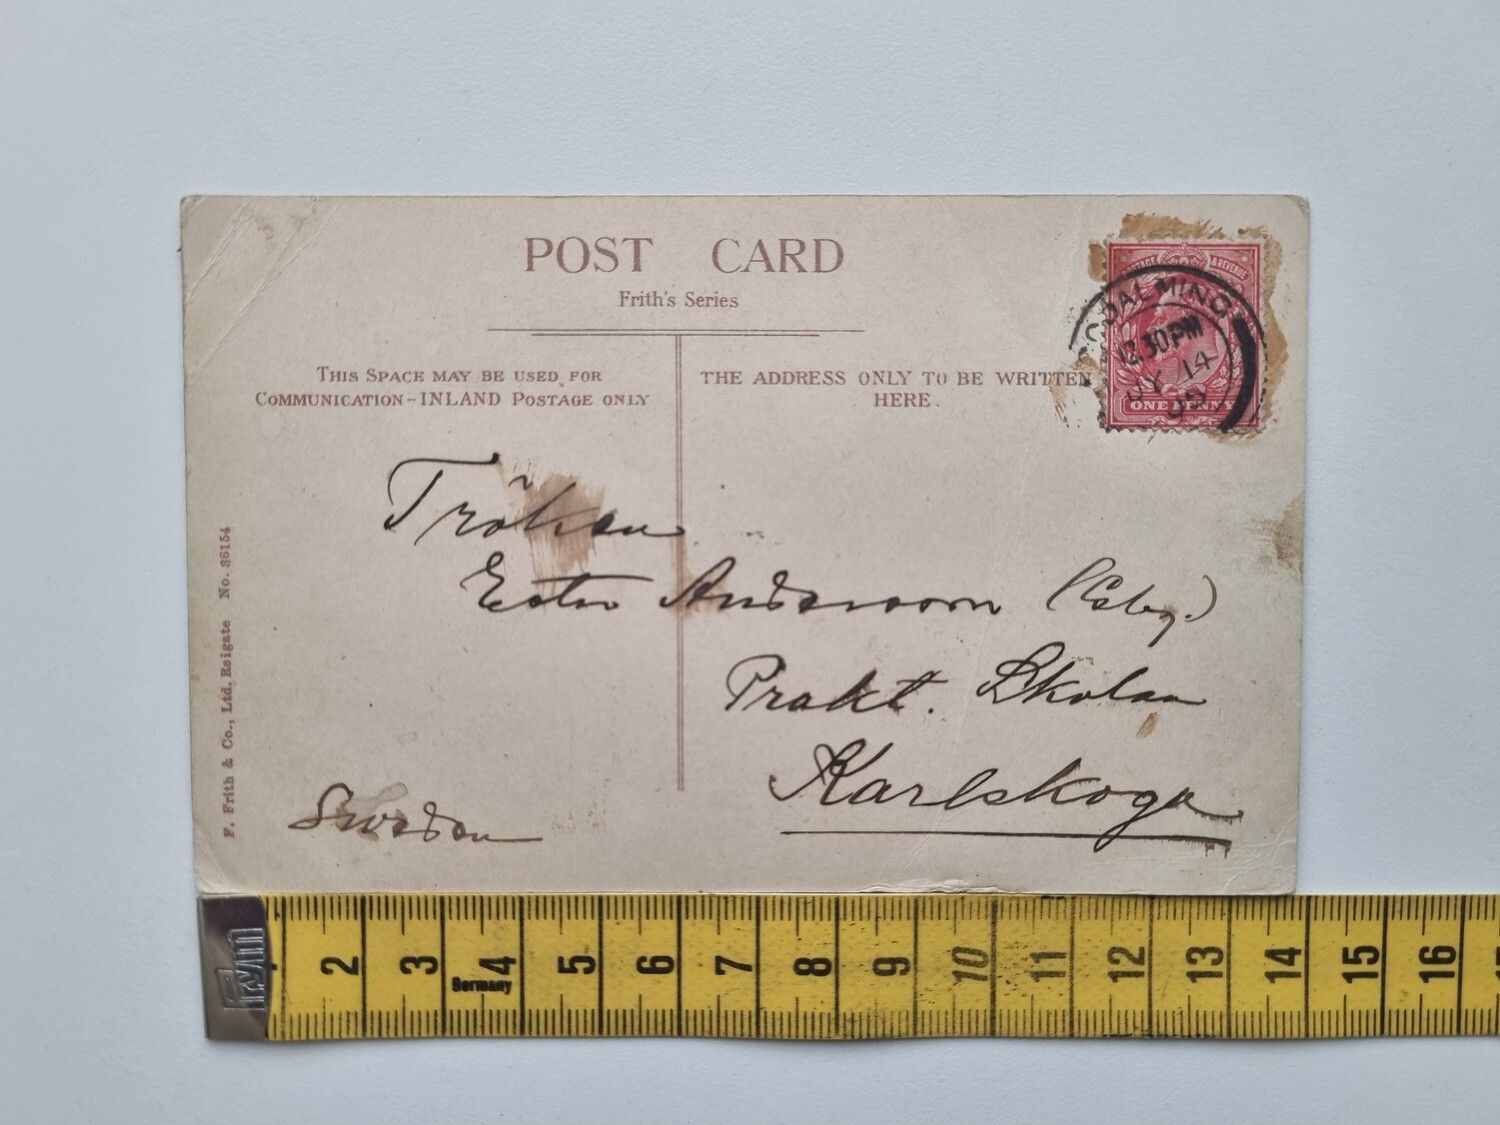 POST CARD
Frith's Series
THIS SPACE MAY BE USED FOR
COMMUNICATION - INLAND POSTAGE ONLY
THE ADDRESS ONLY TO BE WRITTEN
HERE.
POSTAGE & REVENUE
GODALMING
12.30PM
JY 14
ONE PENNY
Fröken
Ester Andersson (Esby.)
Prakt. Skolan
Karlskoga
Sweden
F. Frith & Co., Ltd. Reigate No. 36154
prym
2 3 4 5 6 7 8 9 10 11 12 13 14 15 16
Germany